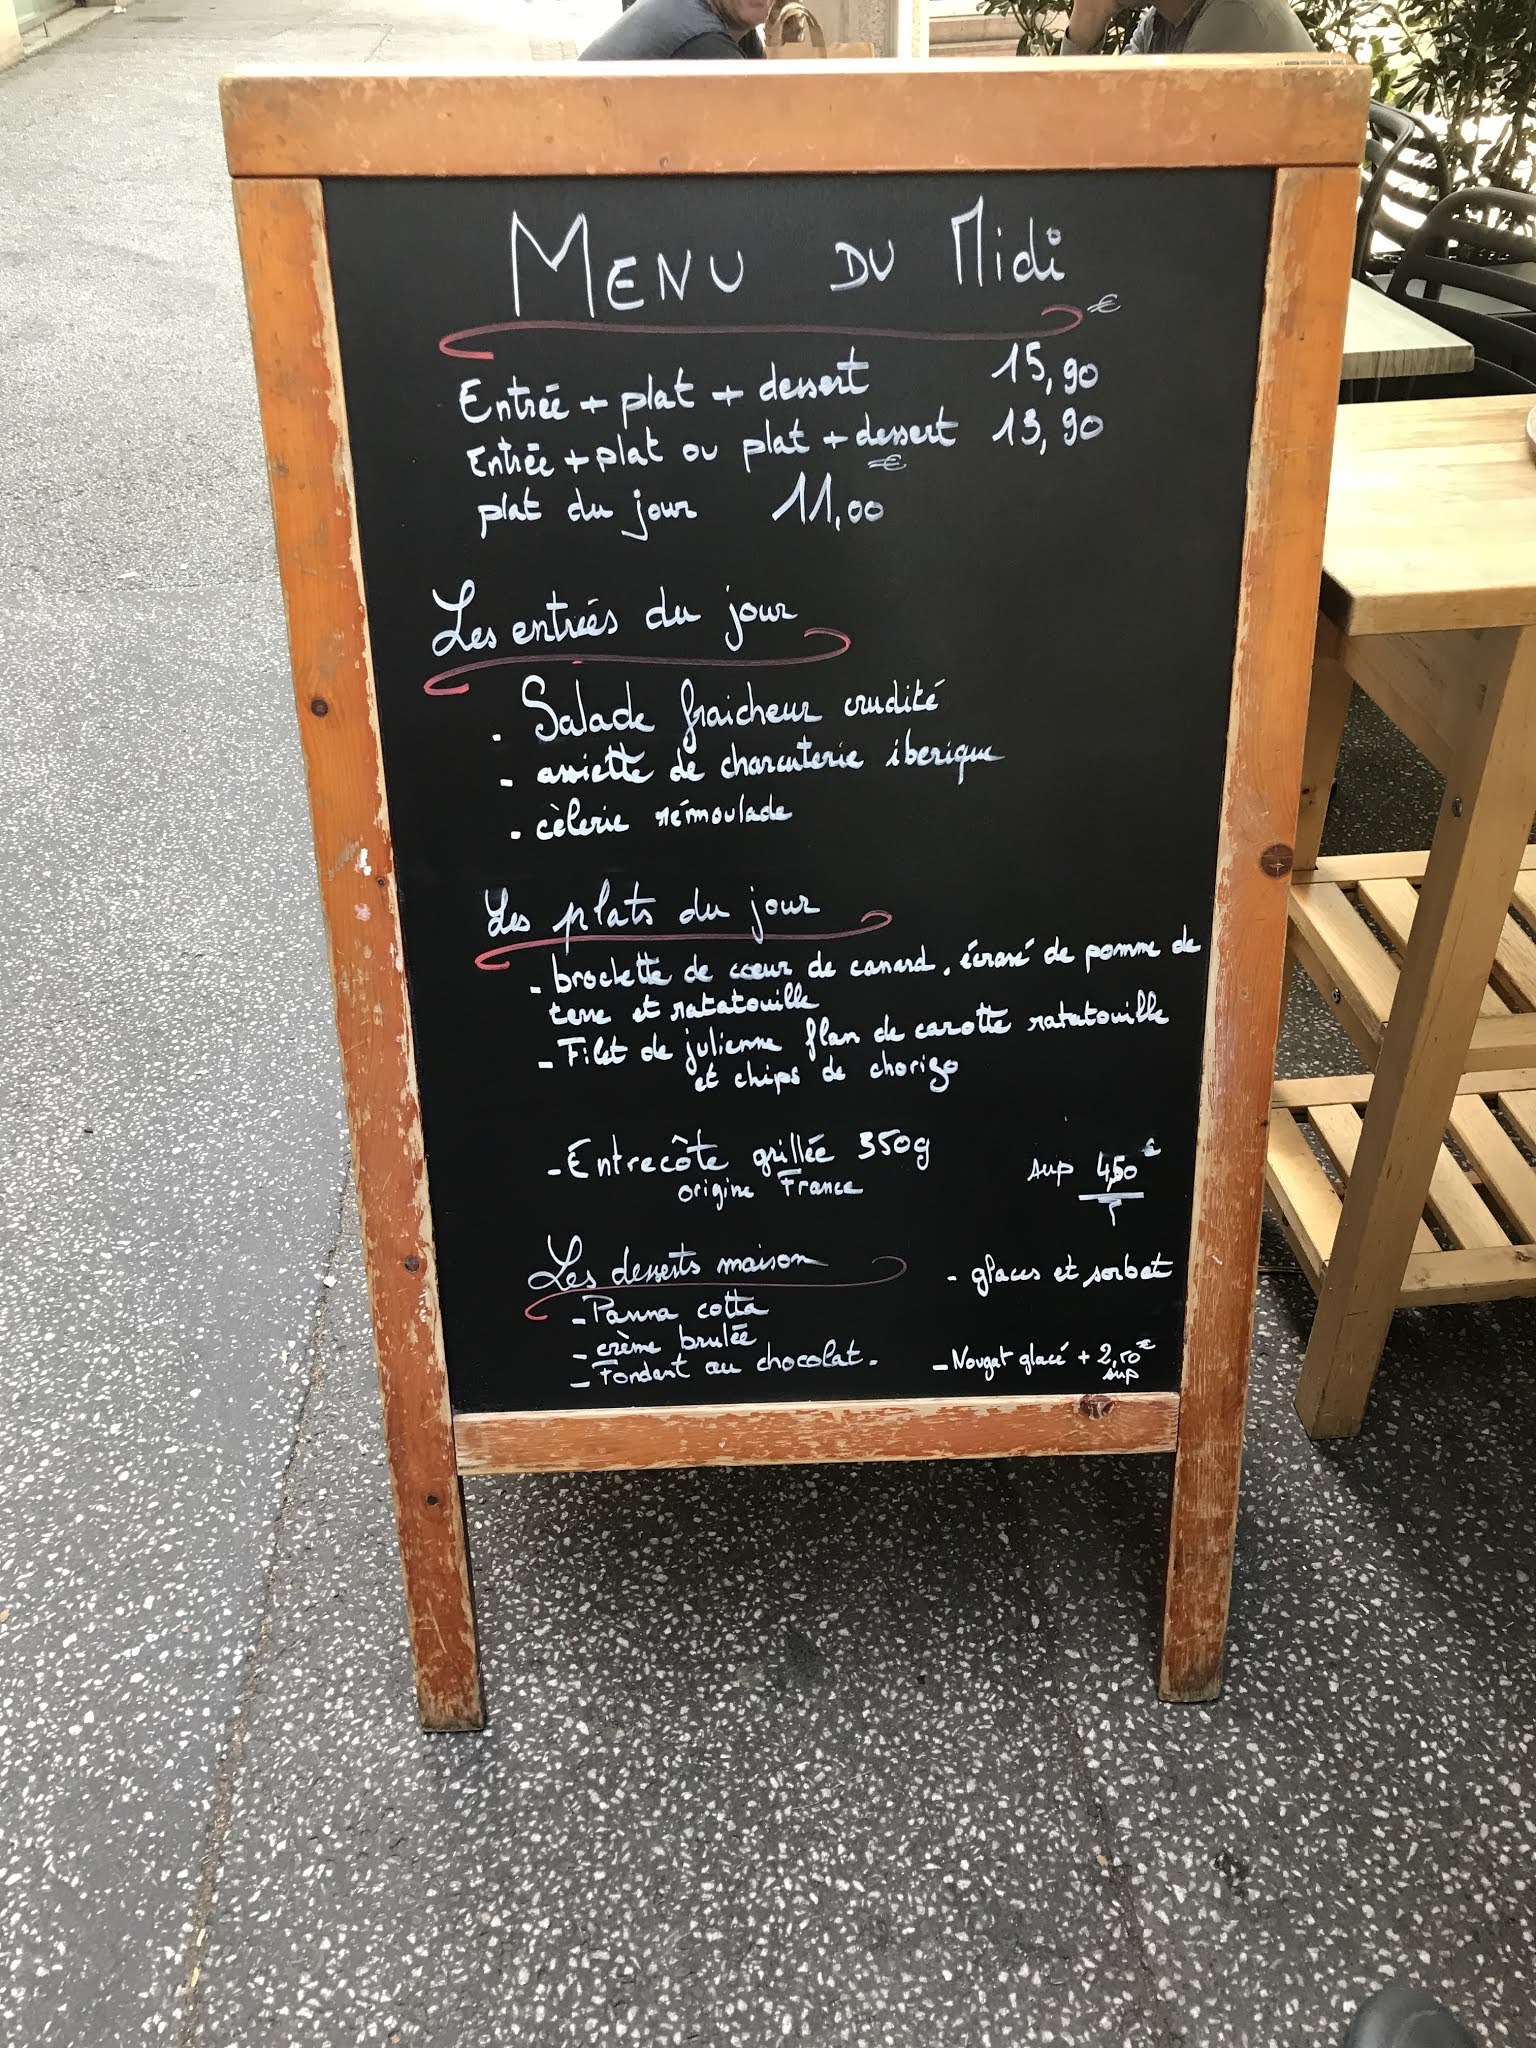 MENU DU Midi
€
Entrée + plat + dessert 15,90
Entrée + plat ou plat + dessert 13,90
€
plat du jour 11,00
Les entrées du jour
. Salade fraicheur crudité
- assiette de charcuterie iberique
. cèlerie rémoulade
Les plats du jour
- brochette de cœur de canard, écrasé de pomme de
terre et ratatouille
- Filet de julienne flan de carotte ratatouille
et chips de chorizo
- Entrecôte grillée 350g sup 4,50 €
origine France
Les desserts maison - glaces et sorbet
- Panna cotta
- crème brulée
- Fondant au chocolat. - Nougat glacé + 2,50 €
sup